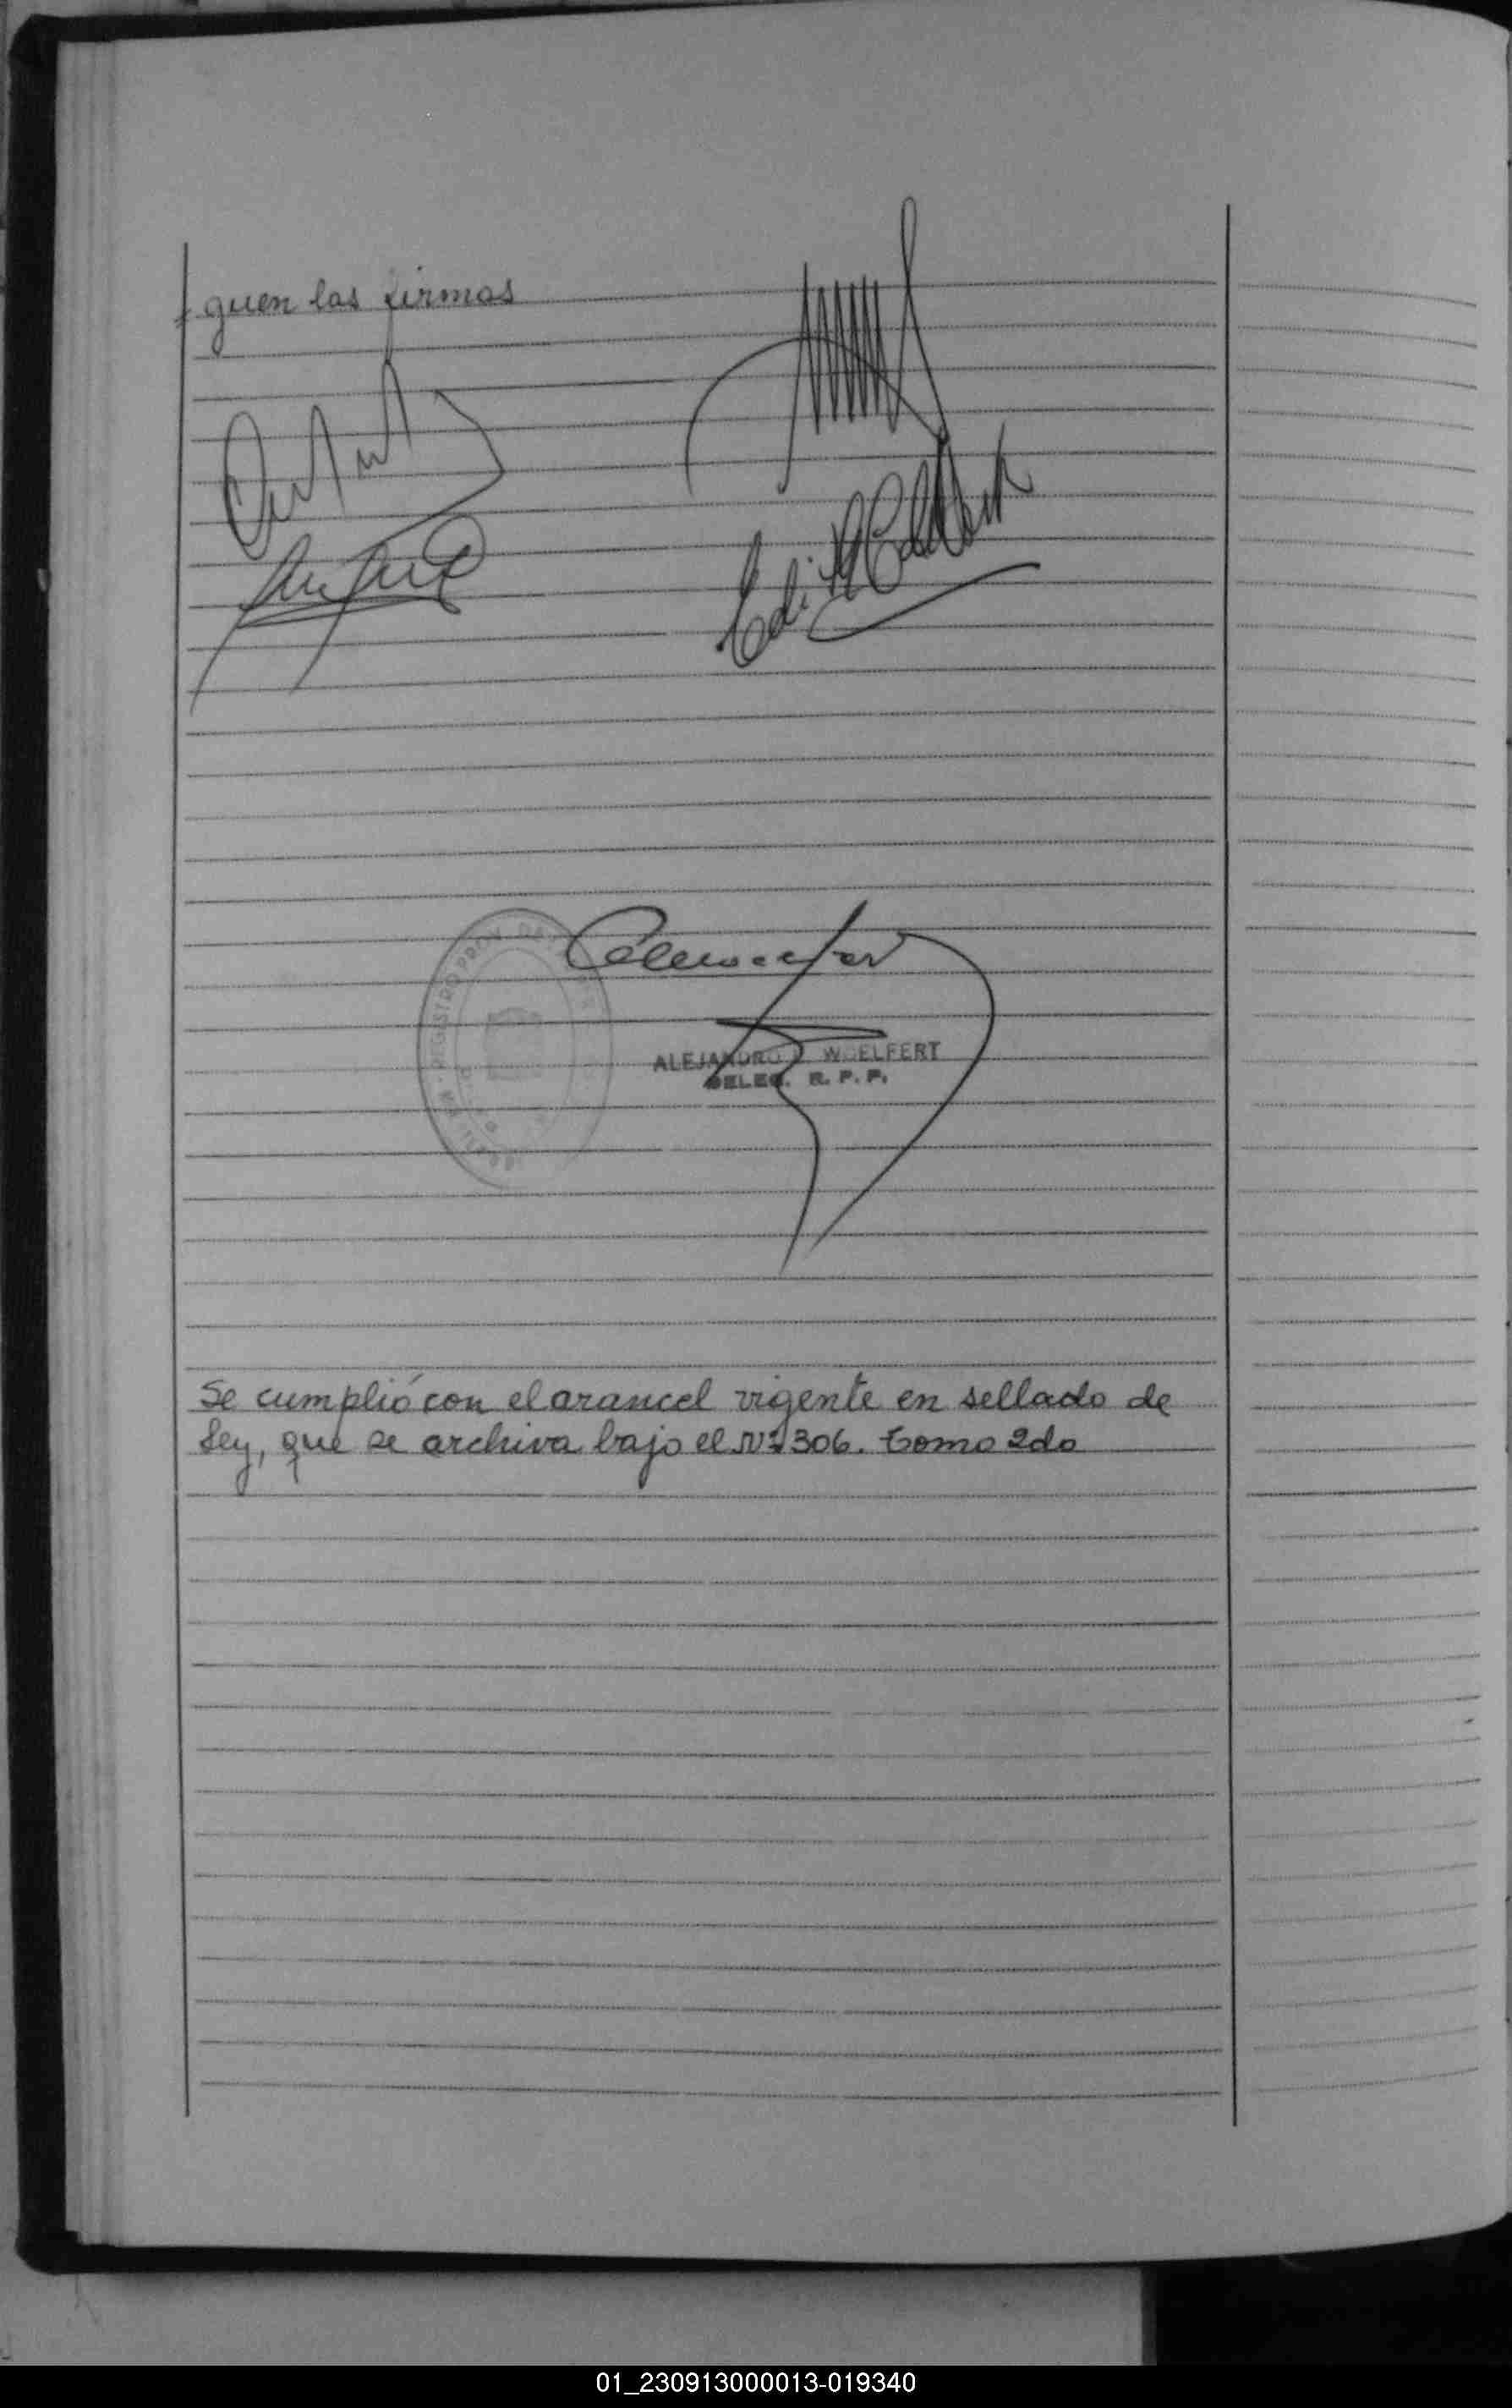 guen las firmas
REGISTRO PROV. DE
ALEJANDRO WOELFERT
DELEG. R. P. P.
Se cumplió con el arancel vigente en sellado de
Ley, que se archiva bajo el Nº 306. Tomo 2do
01_230913000013-019340